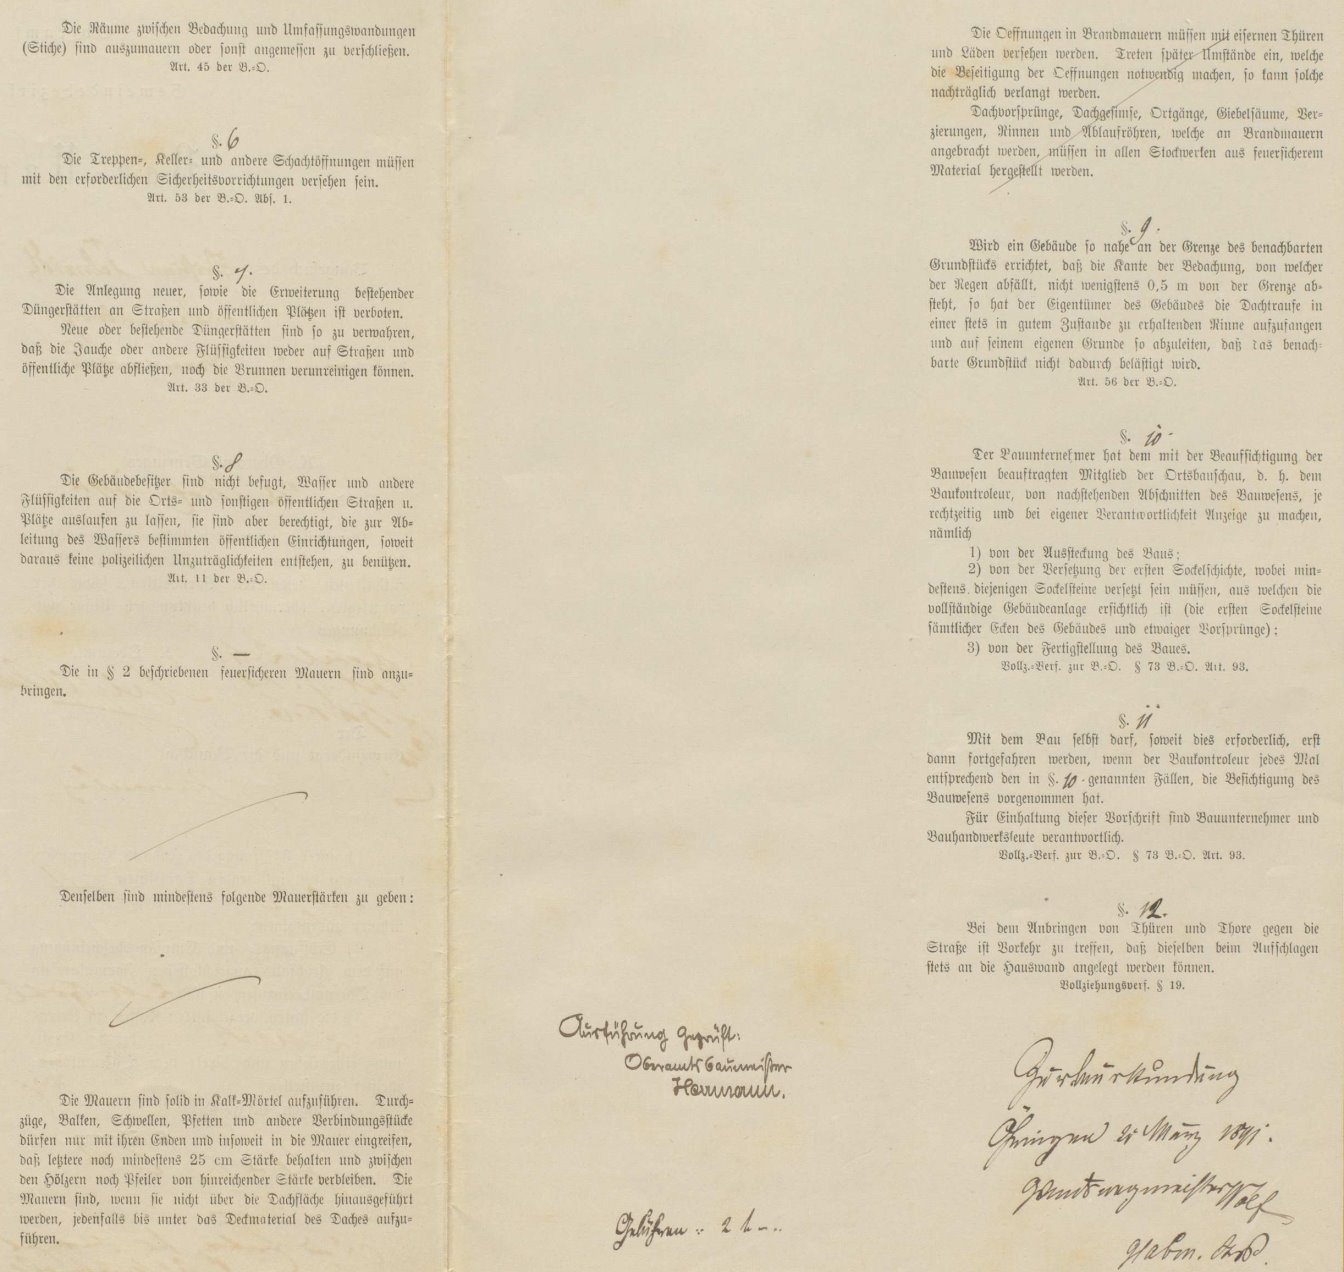 Die Räume zwischen Bedachung und Umfassungswandungen
(Stiche) sind auszumauern oder sonst angemessen zu verschließen.
Art. 45 der B.=O.
§. 6
Die Treppen=, Keller= und andere Schachtöffnungen müssen
mit den erforderlichen Sicherheitsvorrichtungen versehen sein.
Art. 53 der B.=O. Abs. 1.
§. 7.
Die Anlegung neuer, sowie die Erweiterung bestehender
Düngerstätten an Straßen und öffentlichen Plätzen ist verboten.
Neue oder bestehende Düngerstätten sind so zu verwahren,
daß die Jauche oder andere Flüssigkeiten weder auf Straßen und
öffentliche Plätze abfließen, noch die Brunnen verunreinigen können.
Art. 33 der B.=O.
§. 8
Die Gebäudebesitzer sind nicht befugt, Wasser und andere
Flüssigkeiten auf die Orts= und sonstigen öffentlichen Straßen u.
Plätze auslaufen zu lassen, sie sind aber berechtigt, die zur Ab=
leitung des Wassers bestimmten öffentlichen Einrichtungen, soweit
daraus keine polizeilichen Unzuträglichkeiten entstehen, zu benützen.
Art. 11 der B.=O.
§. —
Die in § 2 beschriebenen feuersicheren Mauern sind anzu=
bringen.
Denselben sind mindestens folgende Mauerstärken zu geben:
Die Mauern sind solid in Kalk=Mörtel aufzuführen. Durch=
züge, Balken, Schwellen, Pfetten und andere Verbindungsstücke
dürfen nur mit ihren Enden und insoweit in die Mauer eingreifen,
daß letztere noch mindestens 25 cm Stärke behalten und zwischen
den Hölzern noch Pfeiler von hinreichender Stärke verbleiben. Die
Mauern sind, wenn sie nicht über die Dachfläche hinausgeführt
werden, jedenfalls bis unter das Deckmaterial des Daches aufzu=
führen.
Ausführung geprüft:
Oberamtsbaumeister
Hermann.
Gebühren : 2 M —.
Die Oeffnungen in Brandmauern müssen mit eisernen Thüren
und Läden versehen werden. Treten später Umstände ein, welche
die Beseitigung der Oeffnungen notwendig machen, so kann solche
nachträglich verlangt werden.
Dachvorsprünge, Dachgesimse, Ortgänge, Giebelsäume, Ver=
zierungen, Rinnen und Ablaufröhren, welche an Brandmauern
angebracht werden, müssen in allen Stockwerken aus feuersicherem
Material hergestellt werden.
§. 9.
Wird ein Gebäude so nahe an der Grenze des benachbarten
Grundstücks errichtet, daß die Kante der Bedachung, von welcher
der Regen abfällt, nicht wenigstens 0,5 m von der Grenze ab=
steht, so hat der Eigentümer des Gebäudes die Dachtraufe in
einer stets in gutem Zustande zu erhaltenden Rinne aufzufangen
und auf seinem eigenen Grunde so abzuleiten, daß das benach=
barte Grundstück nicht dadurch belästigt wird.
Art. 56 der B.=O.
§. 10
Der Bauunternehmer hat dem mit der Beaufsichtigung der
Bauwesen beauftragten Mitglied der Ortsbauschau, d. h. dem
Baukontroleur, von nachstehenden Abschnitten des Bauwesens, je
rechtzeitig und bei eigener Verantwortlichkeit Anzeige zu machen,
nämlich
1) von der Aussteckung des Baus;
2) von der Versetzung der ersten Sockelschichte, wobei min=
destens diejenigen Sockelsteine versetzt sein müssen, aus welchen die
vollständige Gebäudeanlage ersichtlich ist (die ersten Sockelsteine
sämtlicher Ecken des Gebäudes und etwaiger Vorsprünge);
3) von der Fertigstellung des Baues.
Vollz.=Verf. zur B.=O. § 73 B.=O. Art. 93.
§. 11
Mit dem Bau selbst darf, soweit dies erforderlich, erst
dann fortgefahren werden, wenn der Baukontroleur jedes Mal
entsprechend den in §. 10. genannten Fällen, die Besichtigung des
Bauwesens vorgenommen hat.
Für Einhaltung dieser Vorschrift sind Bauunternehmer und
Bauhandwerksleute verantwortlich.
Vollz.=Verf. zur B.=O. § 73 B.=O. Art. 93.
§. 12.
Bei dem Anbringen von Thüren und Thore gegen die
Straße ist Vorkehr zu treffen, daß dieselben beim Aufschlagen
stets an die Hauswand angelegt werden können.
Vollziehungsverf. § 19.
Zur Beurkundung
Öhringen März 1891.
Wolf